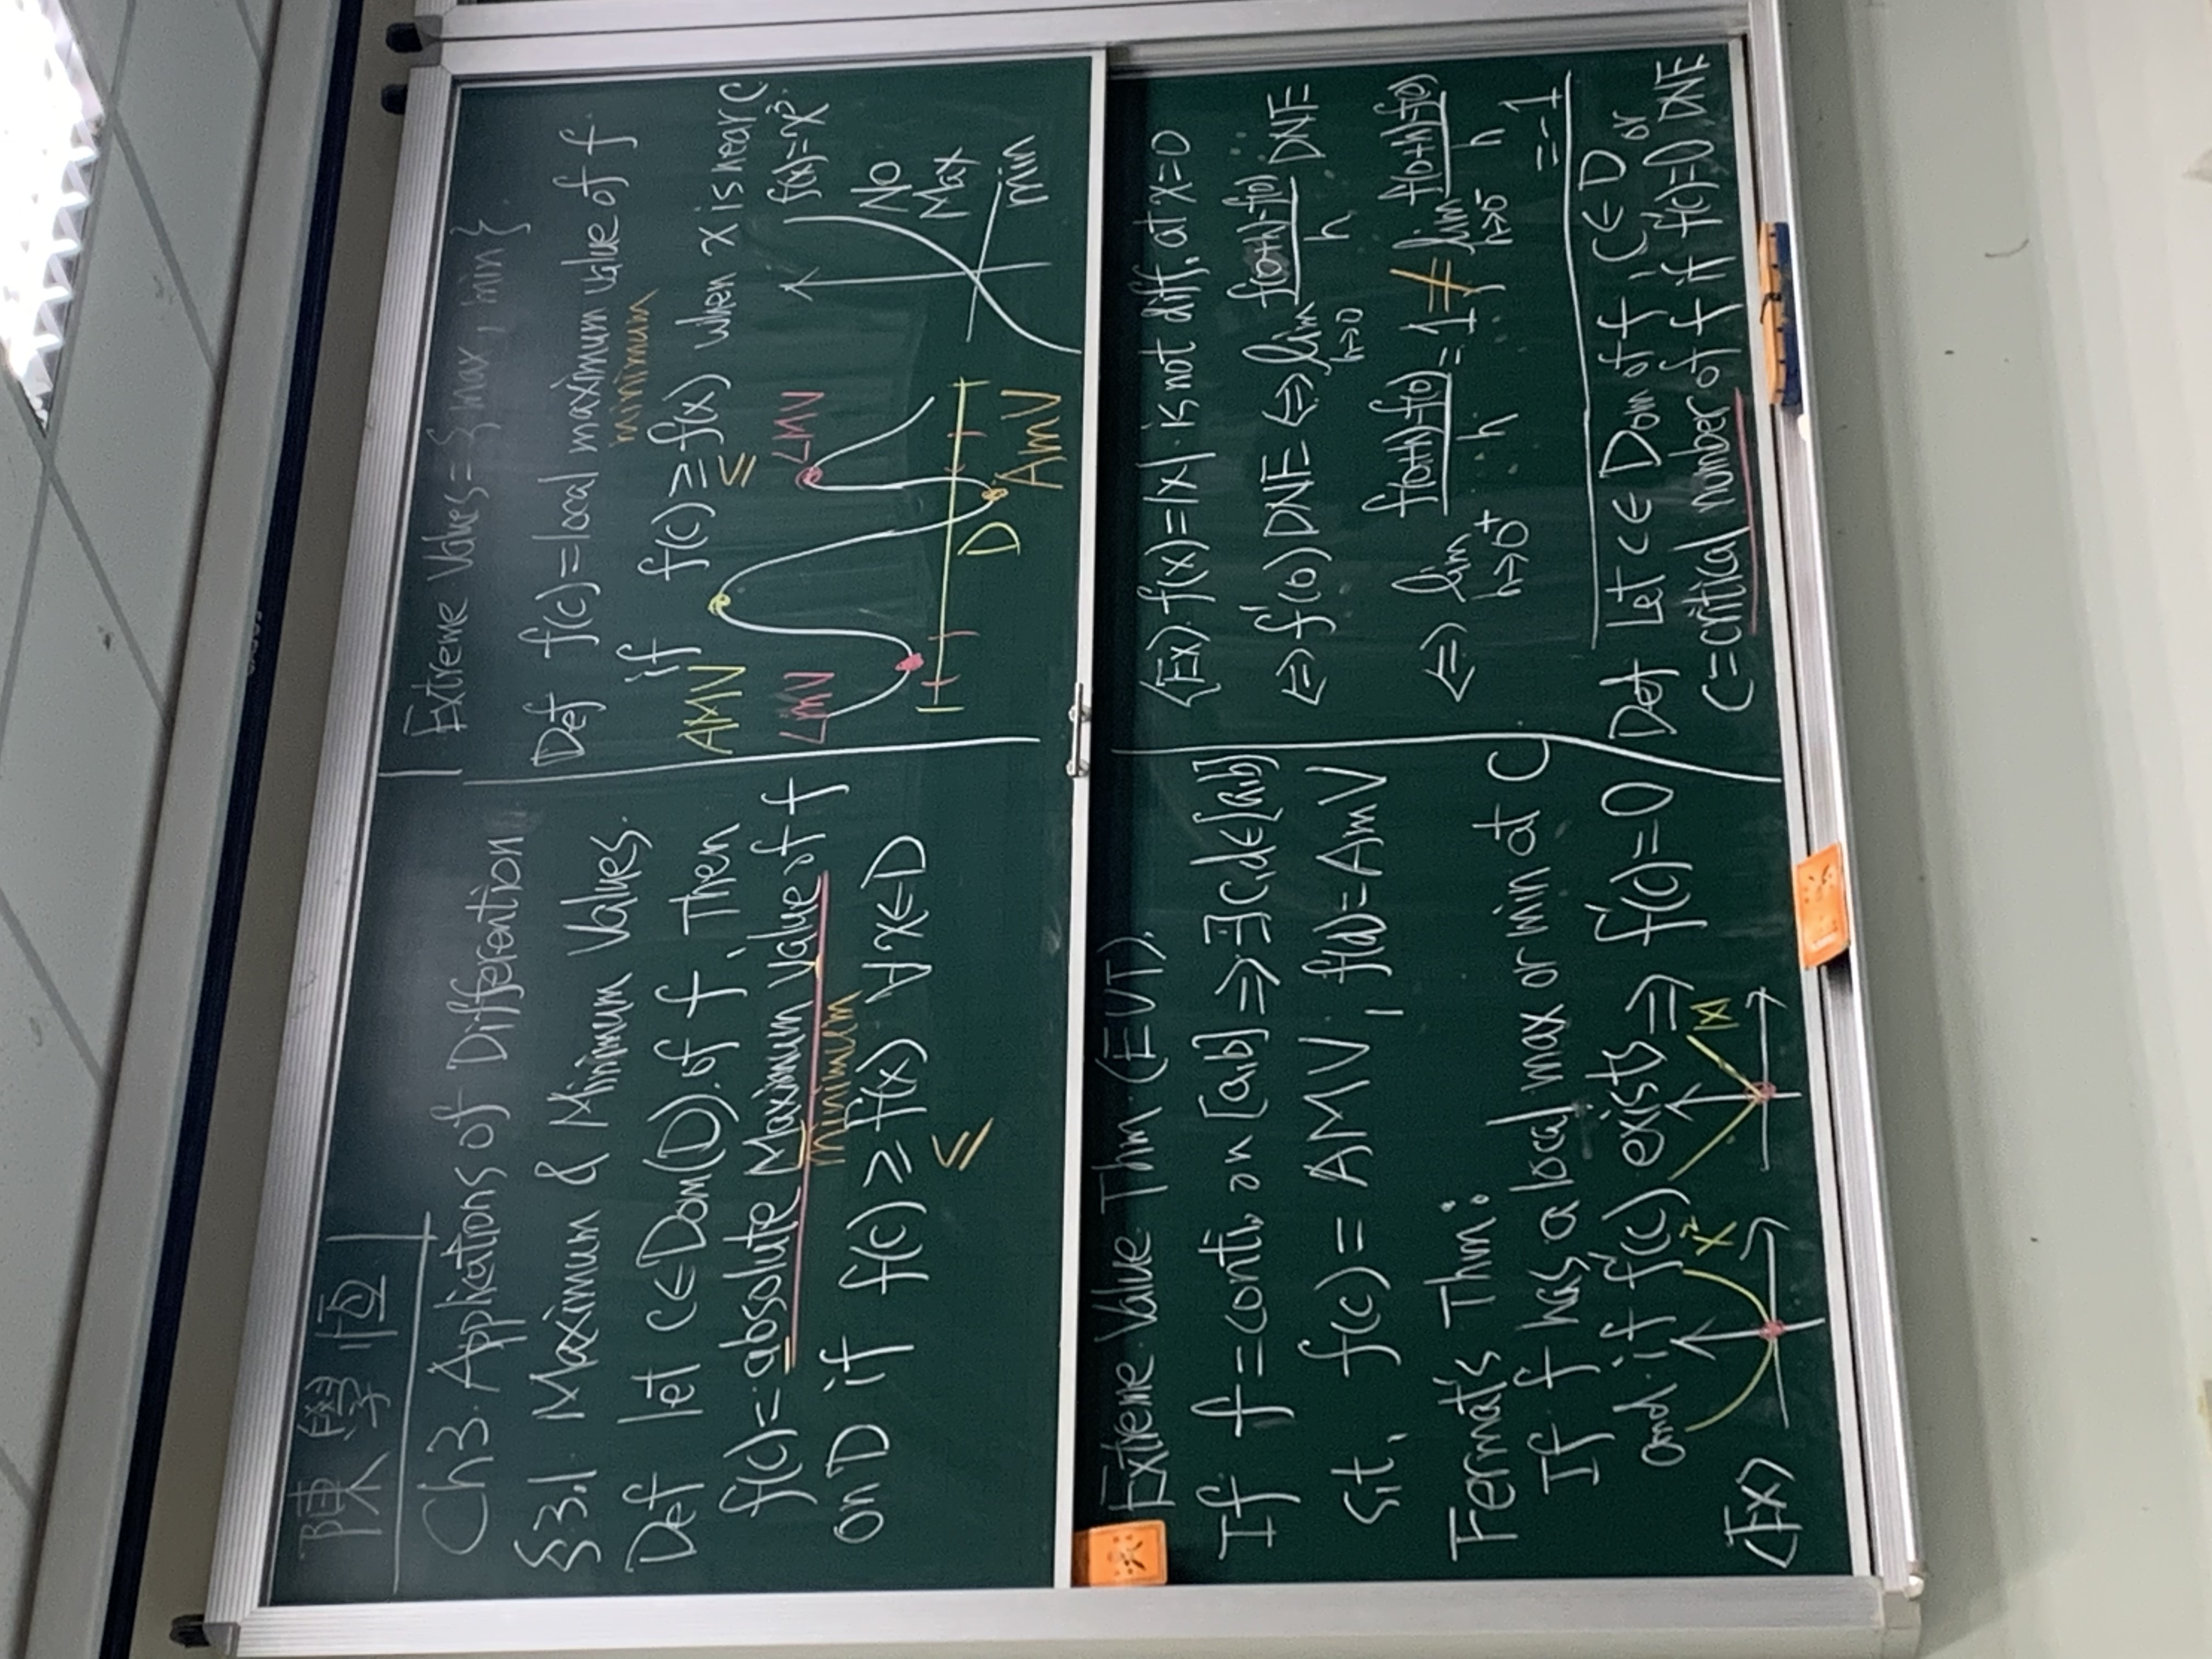 陳學恆
Ch3. Applications of Differention
§3.1 Maximum & Minimum Values.
Def let c∈Dom(D) of f. Then
f(c)= absolute Maximum value of f
minimum
on D if f(c) ≥ f(x) ∀x∈D
≤
Extreme Values = {max, min}.
Def f(c)=local maximum value of f
minimum
if f(c) ≥ f(x) when x is near c.
≤
AMV
LmV
LMV
D
AmV
f(x)=x³
No
Max
min
Extreme Value Thm (EVT).
If f=conti. on [a,b] ⇒ ∃c,d∈[a,b]
s.t. f(c)= AMV, f(d)=AmV
Fermat's Thm:
If f has a local max or min at c.
and if f'(c) exists ⇒ f'(c)=0
<Ex> x² |x|
<Ex> f(x)=|x| is not diff. at x=0
⇔ f'(0) DNE ⇔ lim h→0 (f(0+h)-f(0))/h DNE
⇔ lim h→0⁺ (f(0+h)-f(0))/h = 1 ≠ lim h→0⁻ (f(0+h)-f(0))/h
=-1
Def Let c∈ Dom of f, c∈D
c=critical number of f if f'(c)=0 or DNE